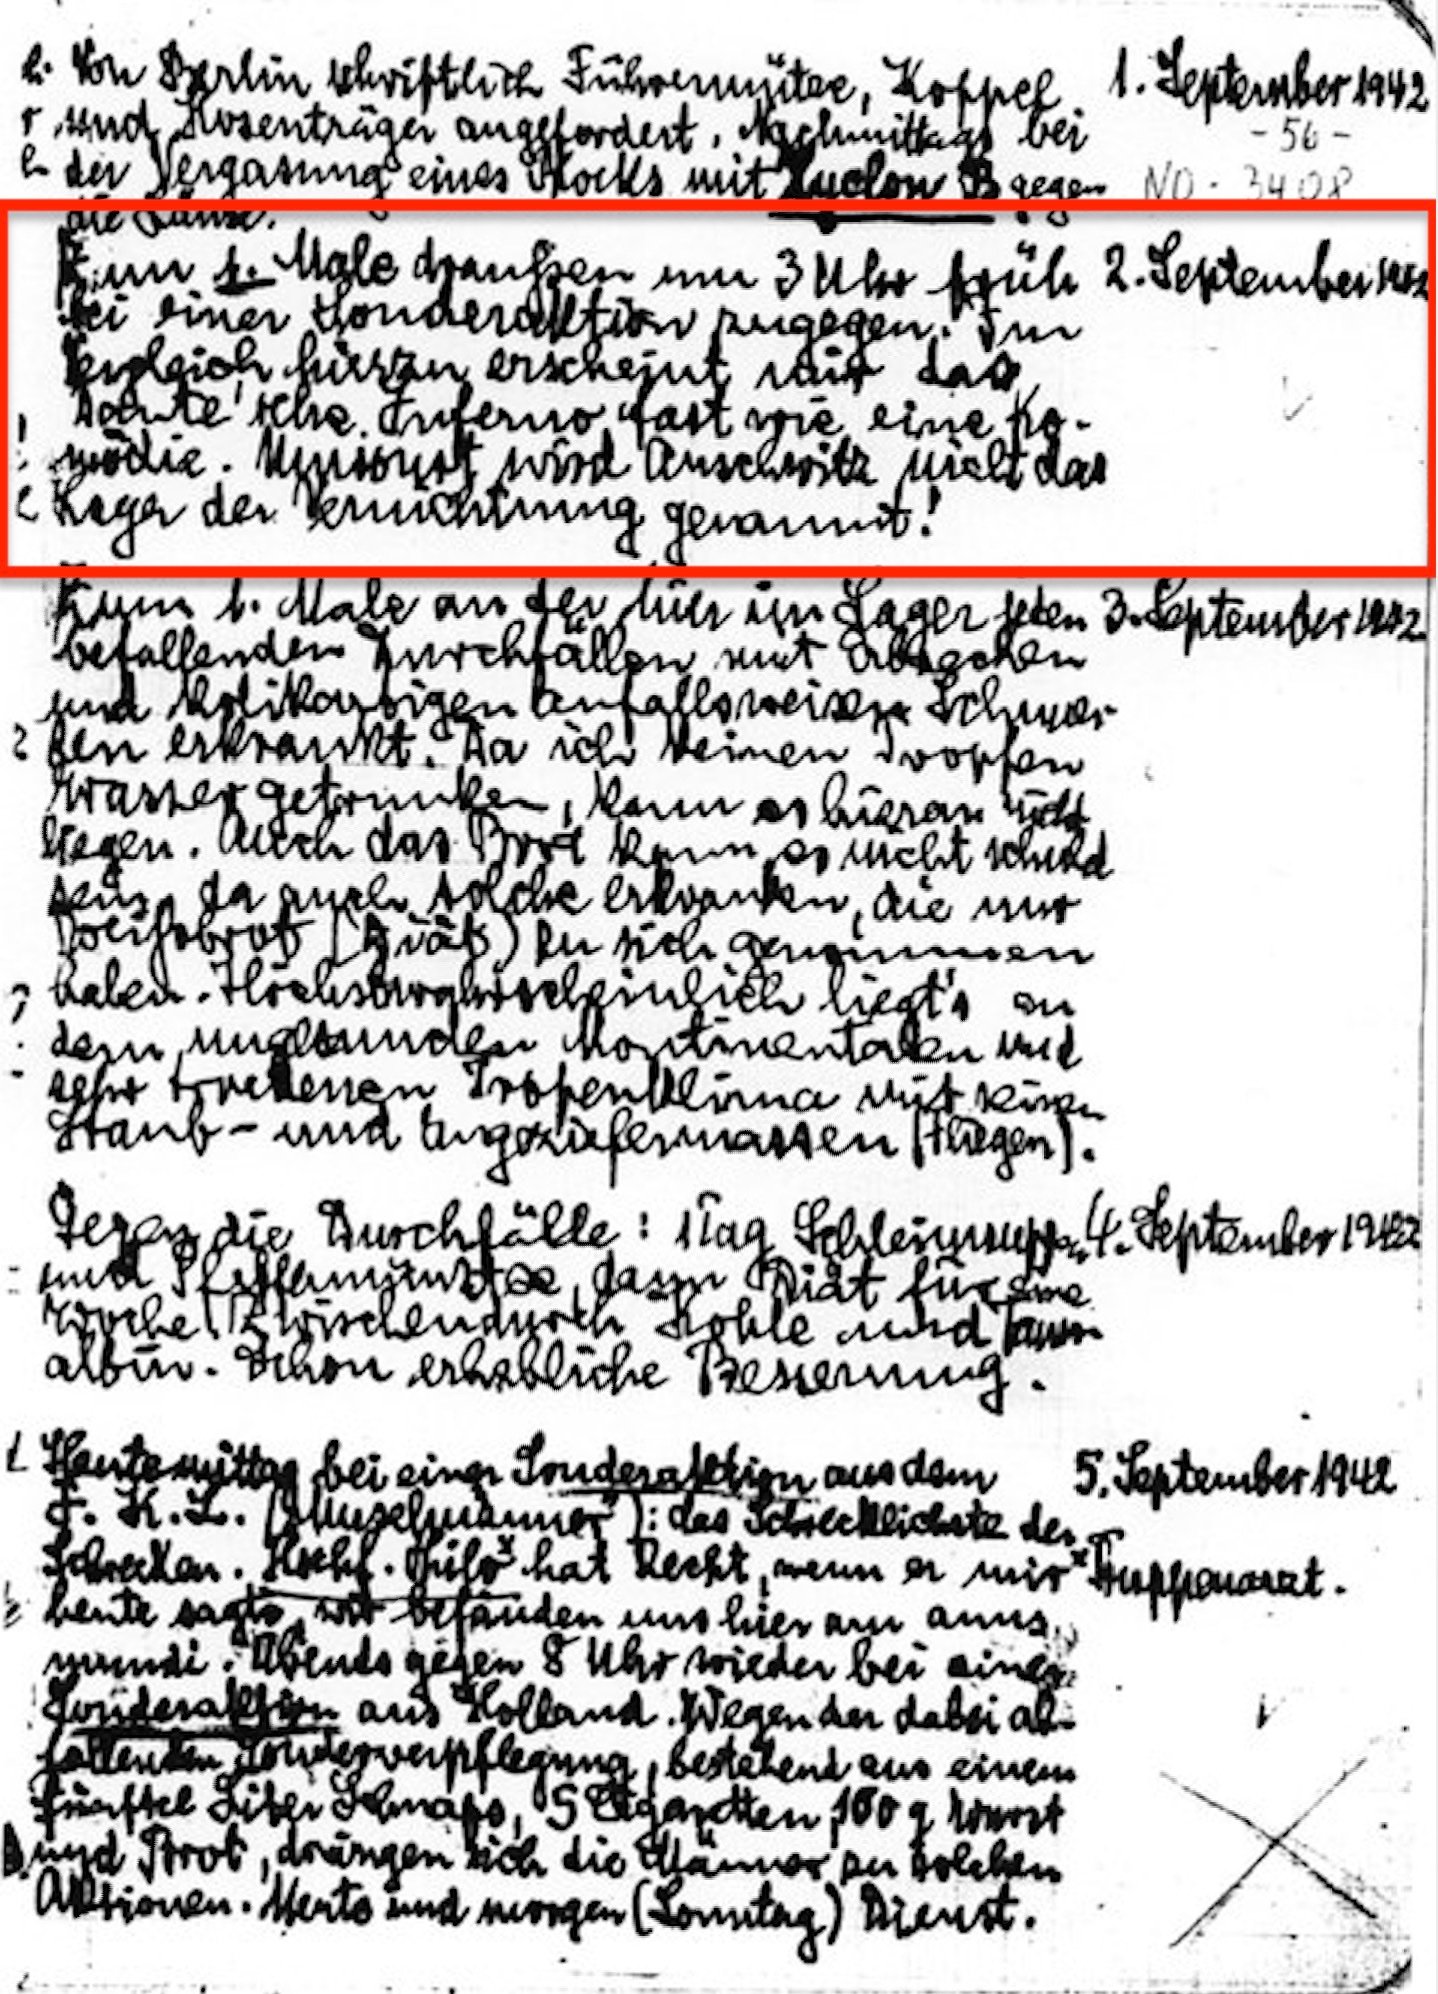 Von Berlin schriftlich Führermütze, Koppel 1. September 1942
und Hosenträger angefordert. Nachmittags bei - 56 -
der Vergasung eines Blocks mit Zyclon B gegen NO - 3408
die Läuse.
Zum 1. Male draußen um 3 Uhr früh 2. September 1942
bei einer Sonderaktion zugegen. Im
Vergleich hierzu erscheint mir das
Dante'sche Inferno fast wie eine Ko-
mödie. Umsonst wird Auschwitz nicht das
Lager der Vernichtung genannt!
Zum 1. Male an der hier im Lager jeden 3. September 1942
befallenden Durchfällen mit Erbrechen
und kolikartigen anfallsweisen Schmer-
zen erkrankt. Da ich keinen Tropfen
Wasser getrunken, kann es hieran nicht
liegen. Auch das Brot kann es nicht schuld
sein, da auch solche erkranken, die nur
Weißbrot (Diät) zu sich genommen
haben. Höchstwahrscheinlich liegt's an
dem ungesunden kontinentalen und
sehr trockenen Tropenklima mit seinen
Staub- und Ungeziefermassen (Fliegen).
Gegen die Durchfälle: 1 Tag Schleimsuppen 4. September 1942
und Pfefferminztee, dann Diät für eine
Woche. Zwischendurch Kohle und Tann-
albin. Schon erhebliche Besserung.
Heute mittag bei einer Sonderaktion aus dem 5. September 1942
F.K.L. ("Muselmänner"): das Schrecklichste der
Schrecken. Hschf. Thilo x hat Recht, wenn er mir x Truppenarzt.
heute sagte, wir befänden uns hier am anus
mundi. Abends gegen 8 Uhr wieder bei einer
Sonderaktion aus Holland. Wegen der dabei ab-
fallenden Sonderverpflegung, bestehend aus einem
fünftel Liter Schnaps, 5 Zigaretten, 100 g Wurst
und Brot, drängen sich die Männer zu solchen
Aktionen. Heute und morgen (Sonntag) Dienst.